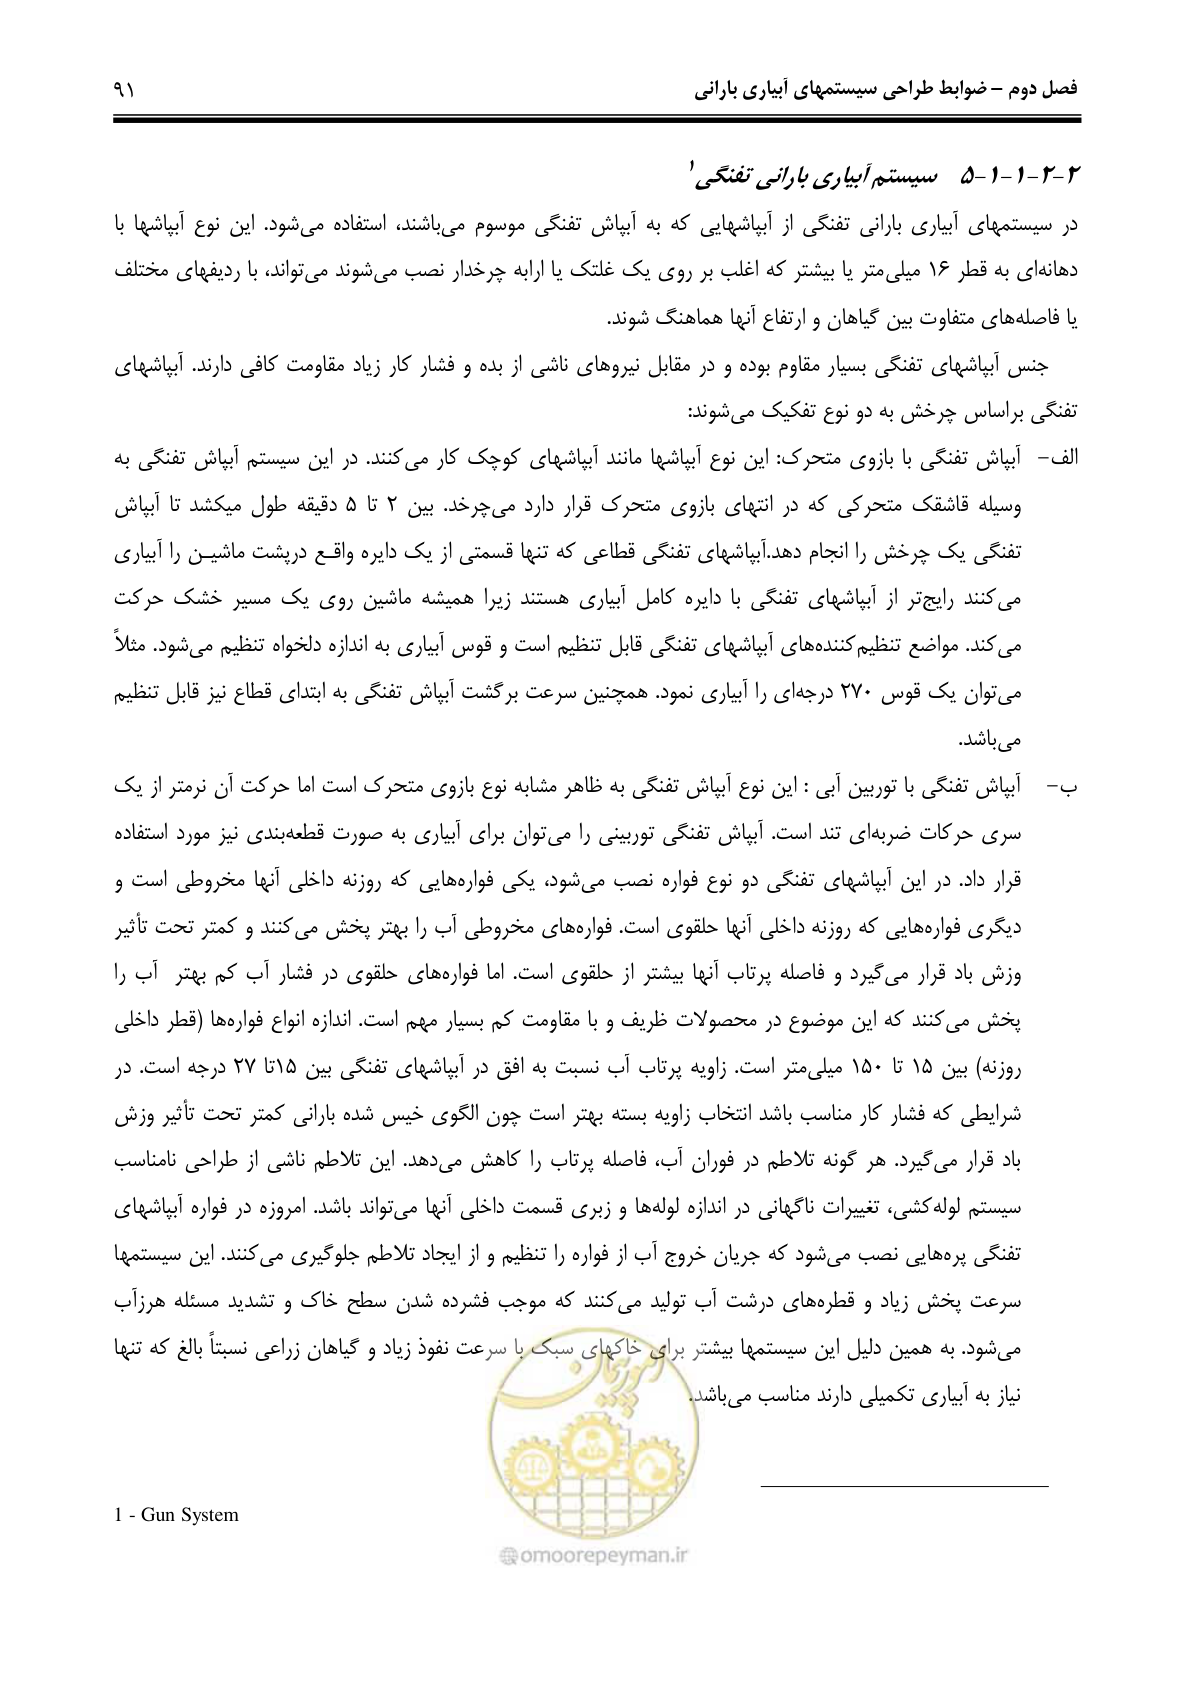 فصل دوم – ضوابط طراحی سیستمهای آبیاری بارانی ۹۱
۲-۲-۱-۱-۵ سیستم آبیاری بارانی تفنگی۱
در سیستمهای آبیاری بارانی تفنگی از آبپاشهایی که به آبپاش تفنگی موسوم می‌باشند، استفاده می‌شود. این نوع آبپاشها با
دهانه‌ای به قطر ۱۶ میلی‌متر یا بیشتر که اغلب بر روی یک غلتک یا ارابه چرخدار نصب می‌شوند می‌تواند، با ردیفهای مختلف
یا فاصله‌های متفاوت بین گیاهان و ارتفاع آنها هماهنگ شوند.
جنس آبپاشهای تفنگی بسیار مقاوم بوده و در مقابل نیروهای ناشی از بده و فشار کار زیاد مقاومت کافی دارند. آبپاشهای
تفنگی براساس چرخش به دو نوع تفکیک می‌شوند:
الف– آبپاش تفنگی با بازوی متحرک: این نوع آبپاشها مانند آبپاشهای کوچک کار می‌کنند. در این سیستم آبپاش تفنگی به
وسیله قاشقک متحرکی که در انتهای بازوی متحرک قرار دارد می‌چرخد. بین ۲ تا ۵ دقیقه طول میکشد تا آبپاش
تفنگی یک چرخش را انجام دهد.آبپاشهای تفنگی قطاعی که تنها قسمتی از یک دایره واقع درپشت ماشین را آبیاری
می‌کنند رایج‌تر از آبپاشهای تفنگی با دایره کامل آبیاری هستند زیرا همیشه ماشین روی یک مسیر خشک حرکت
می‌کند. مواضع تنظیم‌کننده‌های آبپاشهای تفنگی قابل تنظیم است و قوس آبیاری به اندازه دلخواه تنظیم می‌شود. مثلاً
می‌توان یک قوس ۲۷۰ درجه‌ای را آبیاری نمود. همچنین سرعت برگشت آبپاش تفنگی به ابتدای قطاع نیز قابل تنظیم
می‌باشد.
ب– آبپاش تفنگی با توربین آبی : این نوع آبپاش تفنگی به ظاهر مشابه نوع بازوی متحرک است اما حرکت آن نرمتر از یک
سری حرکات ضربه‌ای تند است. آبپاش تفنگی توربینی را می‌توان برای آبیاری به صورت قطعه‌بندی نیز مورد استفاده
قرار داد. در این آبپاشهای تفنگی دو نوع فواره نصب می‌شود، یکی فواره‌هایی که روزنه داخلی آنها مخروطی است و
دیگری فواره‌هایی که روزنه داخلی آنها حلقوی است. فواره‌های مخروطی آب را بهتر پخش می‌کنند و کمتر تحت تأثیر
وزش باد قرار می‌گیرد و فاصله پرتاب آنها بیشتر از حلقوی است. اما فواره‌های حلقوی در فشار آب کم بهتر آب را
پخش می‌کنند که این موضوع در محصولات ظریف و با مقاومت کم بسیار مهم است. اندازه انواع فواره‌ها (قطر داخلی
روزنه) بین ۱۵ تا ۱۵۰ میلی‌متر است. زاویه پرتاب آب نسبت به افق در آبپاشهای تفنگی بین ۱۵تا ۲۷ درجه است. در
شرایطی که فشار کار مناسب باشد انتخاب زاویه بسته بهتر است چون الگوی خیس شده بارانی کمتر تحت تأثیر وزش
باد قرار می‌گیرد. هر گونه تلاطم در فوران آب، فاصله پرتاب را کاهش می‌دهد. این تلاطم ناشی از طراحی نامناسب
سیستم لوله‌کشی، تغییرات ناگهانی در اندازه لوله‌ها و زبری قسمت داخلی آنها می‌تواند باشد. امروزه در فواره آبپاشهای
تفنگی پره‌هایی نصب می‌شود که جریان خروج آب از فواره را تنظیم و از ایجاد تلاطم جلوگیری می‌کنند. این سیستمها
سرعت پخش زیاد و قطره‌های درشت آب تولید می‌کنند که موجب فشرده شدن سطح خاک و تشدید مسئله هرزآب
می‌شود. به همین دلیل این سیستمها بیشتر برای خاکهای سبک با سرعت نفوذ زیاد و گیاهان زراعی نسبتاً بالغ که تنها
نیاز به آبیاری تکمیلی دارند مناسب می‌باشد.
امور پیمان
1 - Gun System
@omoorepeyman.ir